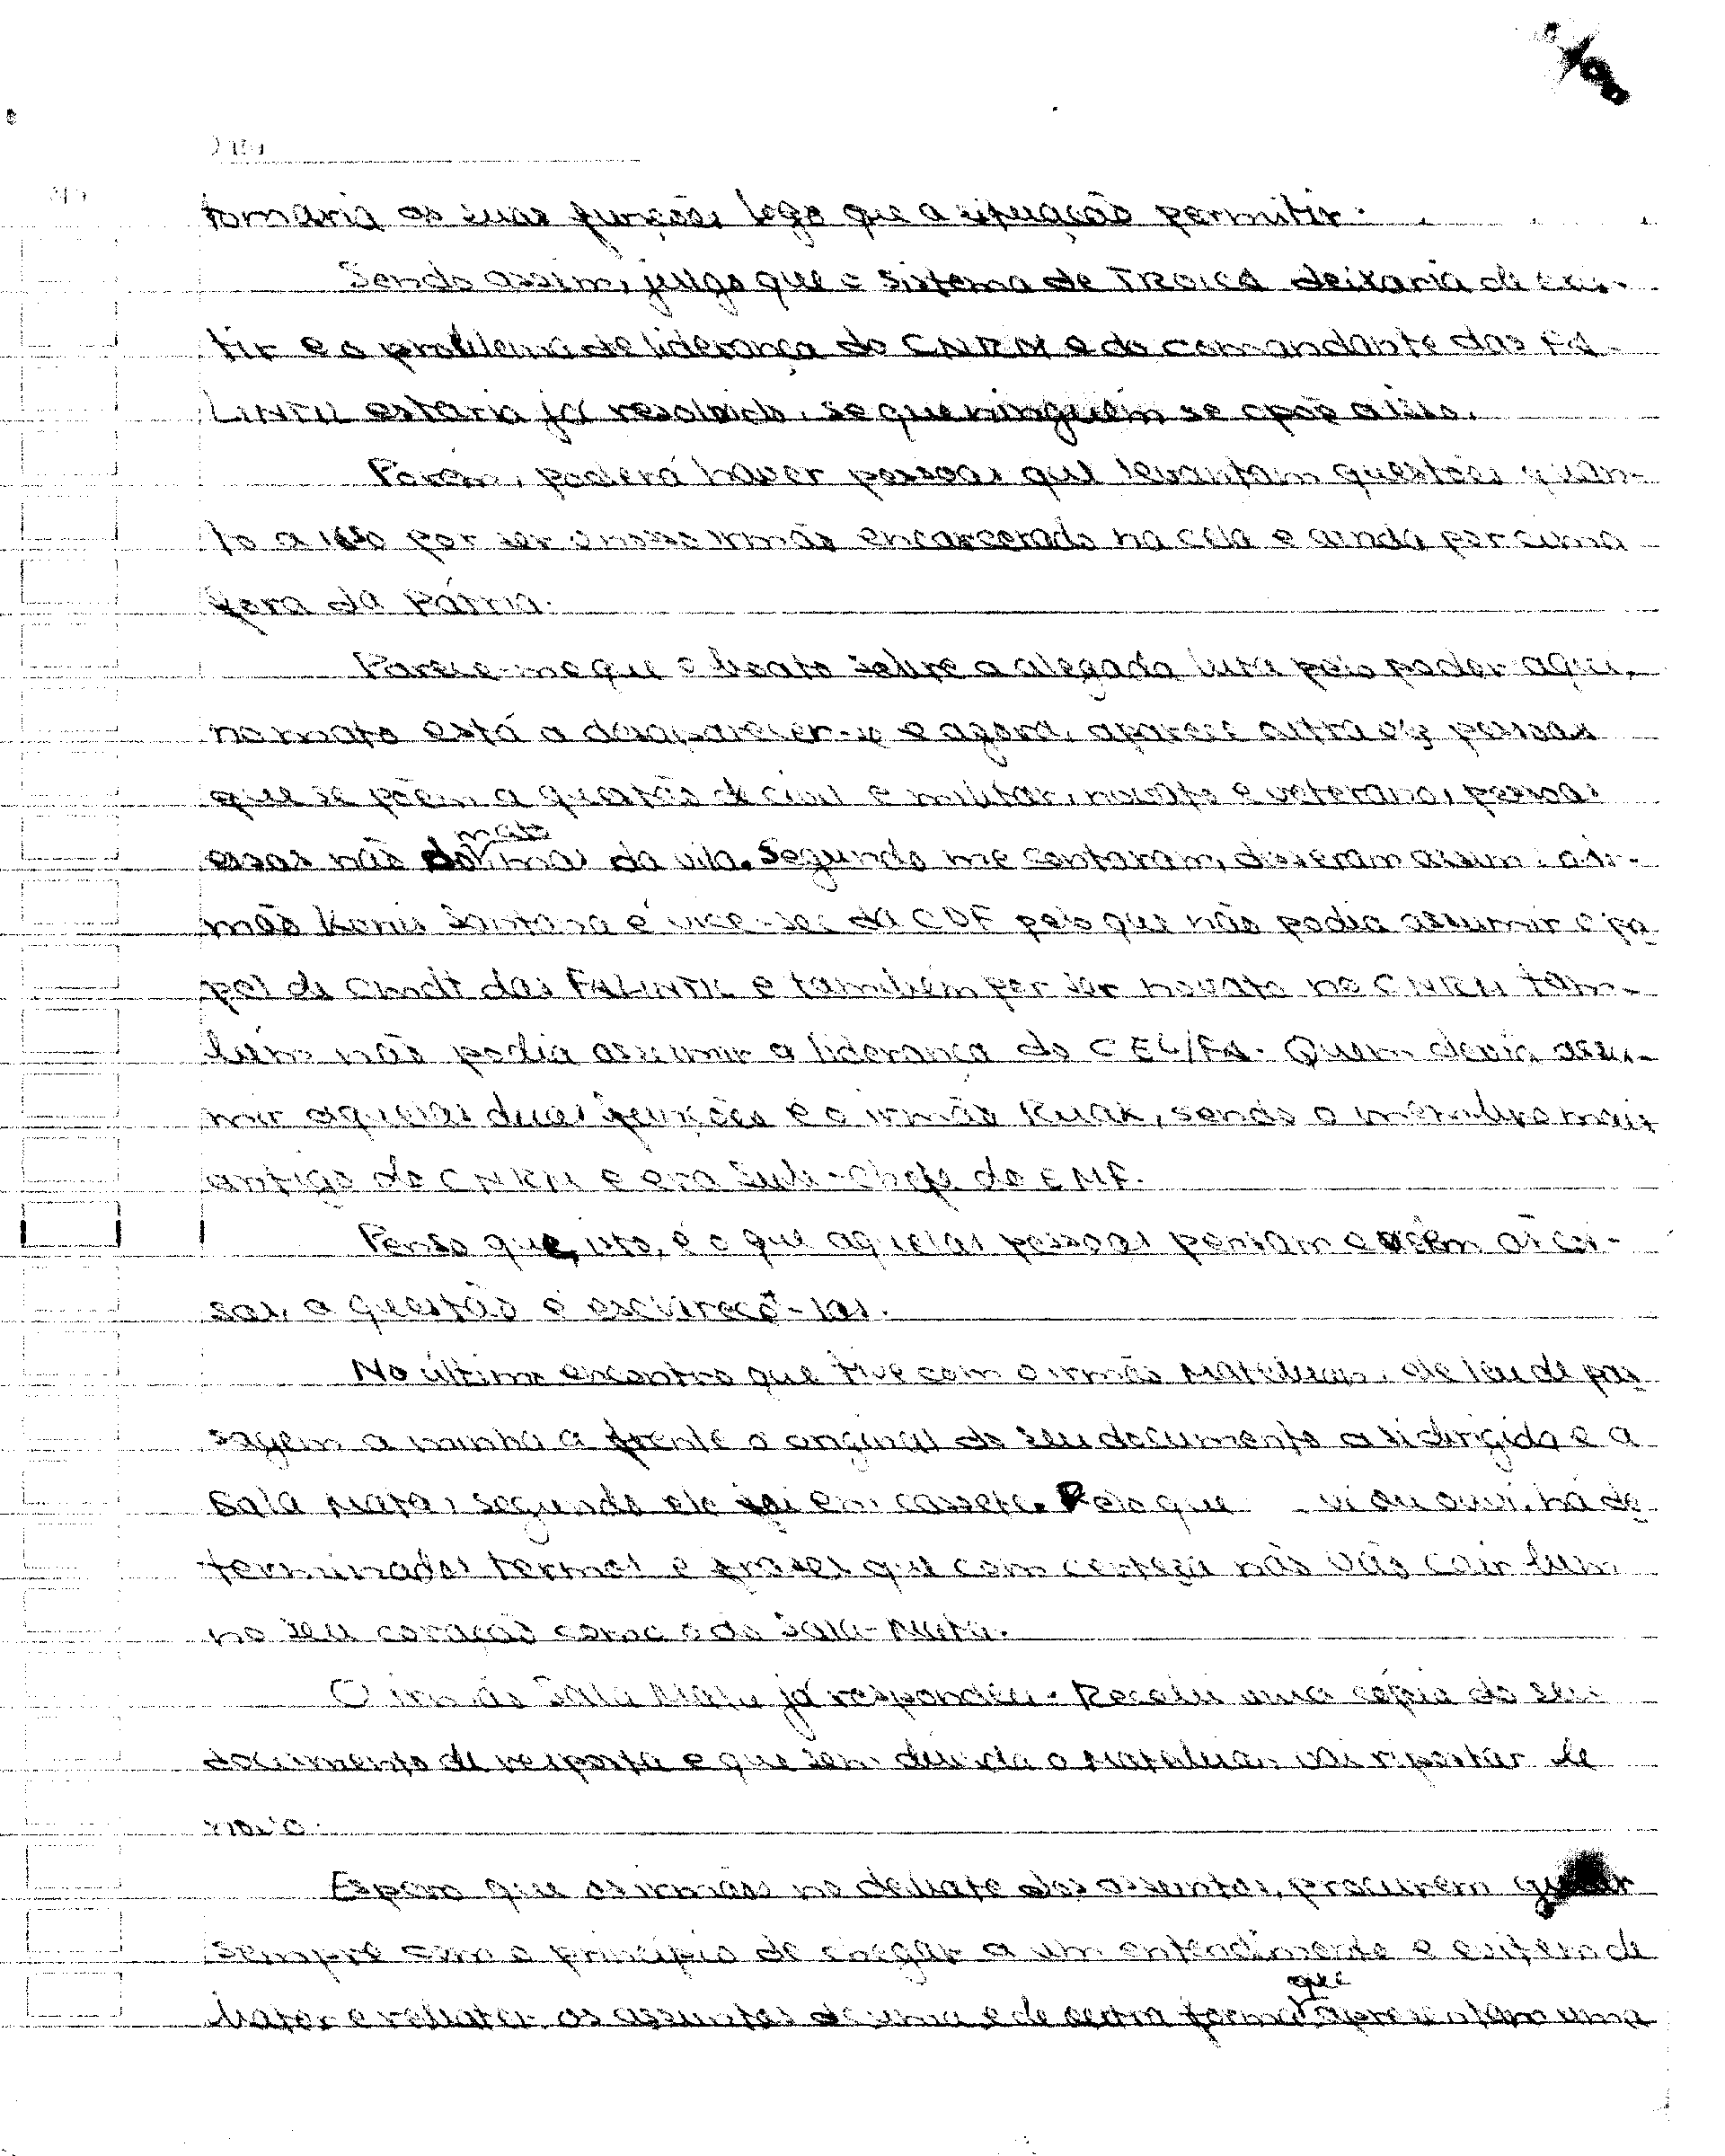 Data
tomaria as suas funções logo que a situação permitir.
Sendo assim, julgo que o sistema de TROICA deixaria de exis-
tir e o problema de liderança do CNRM e do comandante das FA-
LINTIL estaria já resolvido, se que ninguém se opõe a isso.
Porém, poderá haver pessoas que levantam questões quan-
to a isso por ser o nosso irmão encarcerado na cela e ainda por cima
fora da Pátria.
Parece-me que o boato sobre a alegada luta pelo poder aqui,
no mato está a desaparecer-se e agora, aparece outra vez pessoas
que se põem a questão de civil e militar, novato e veterano, pessoas
essas não do mato mas da vila. Segundo me contaram, disseram assim: o ir-
mão Konis Santana é vice-sec da CDF pelo que não podia assumir o pa-
pel de Cmdt das FALINTIL e também por ser novato no CNRM tam-
bém não podia assumir a liderança do CEL/FA. Quem devia assu-
mir aquelas duas funções é o irmão Ruak, sendo o membro mais
antigo do CNRM e era Sub-Chefe do EMF.
Penso que, isto, é o que aquelas pessoas pensam e vêem as coi-
sas, a questão é esclarecê-las.
No último encontro que tive com o irmão Mataluan, ele leu de pas-
sagem a minha a frente o original do seu documento a si dirigido e a
Sala Mata, segundo ele foi em cassete. Pelo que vi ou ouvi, há de-
terminados termos e frases que com certeza não vão cair bem
no seu coração como o do Sala-Mata.
O irmão Sala Mata já respondeu. Recebi uma cópia do seu
documento de resposta e que sem dúvida o Mataluan vai ripostar de
novo.
Espero que os irmãos no debate dos assuntos, procurem
sempre com o princípio de chegar a um entendimento e evitem de
bater e rebater os assuntos de uma e de outra forma que apresentam uma